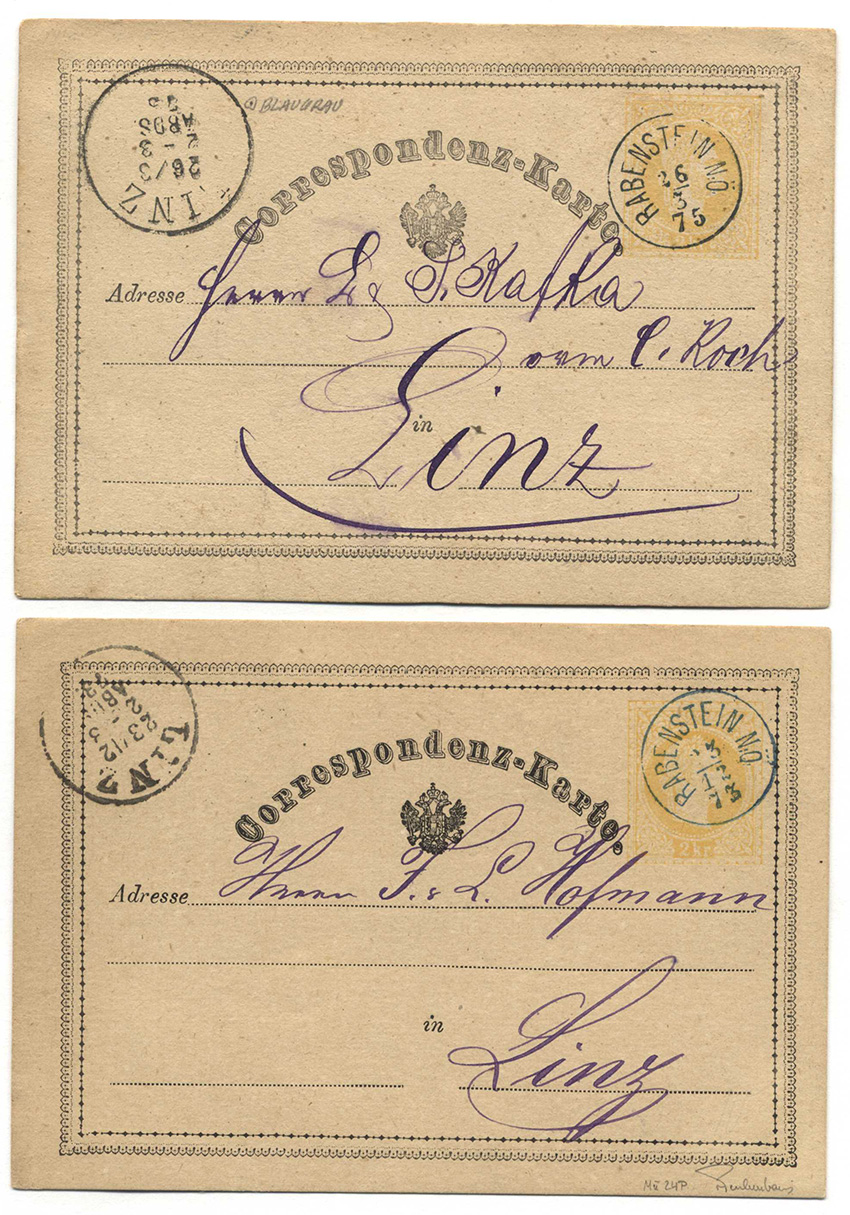 LINZ
26/3
BLAUGRAU
Correspondenz-Karte.
RABENSTEIN N.Ö.
26
3
75
Adresse Herrn L & S. Kafka
vorm C. Koch
in
Linz
LINZ
3/12
Correspondenz-Karte.
RABENSTEIN N.Ö.
2 kr
Adresse Herrn F. & L. Hofmann
in
Linz
Mü 24P